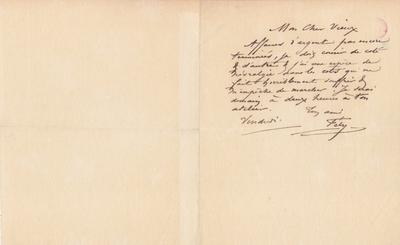 Mon Cher Vieux
Affaires d'argent pas encore
terminées, je dois courir de coté
& d'autre & j'ai une espèce de
névralgie dans les cotés qui me
fait horriblement souffrir &
m'empêche de marcher. Je serai
demain à deux heures à ton
atelier.
Ton ami
Vendredi.